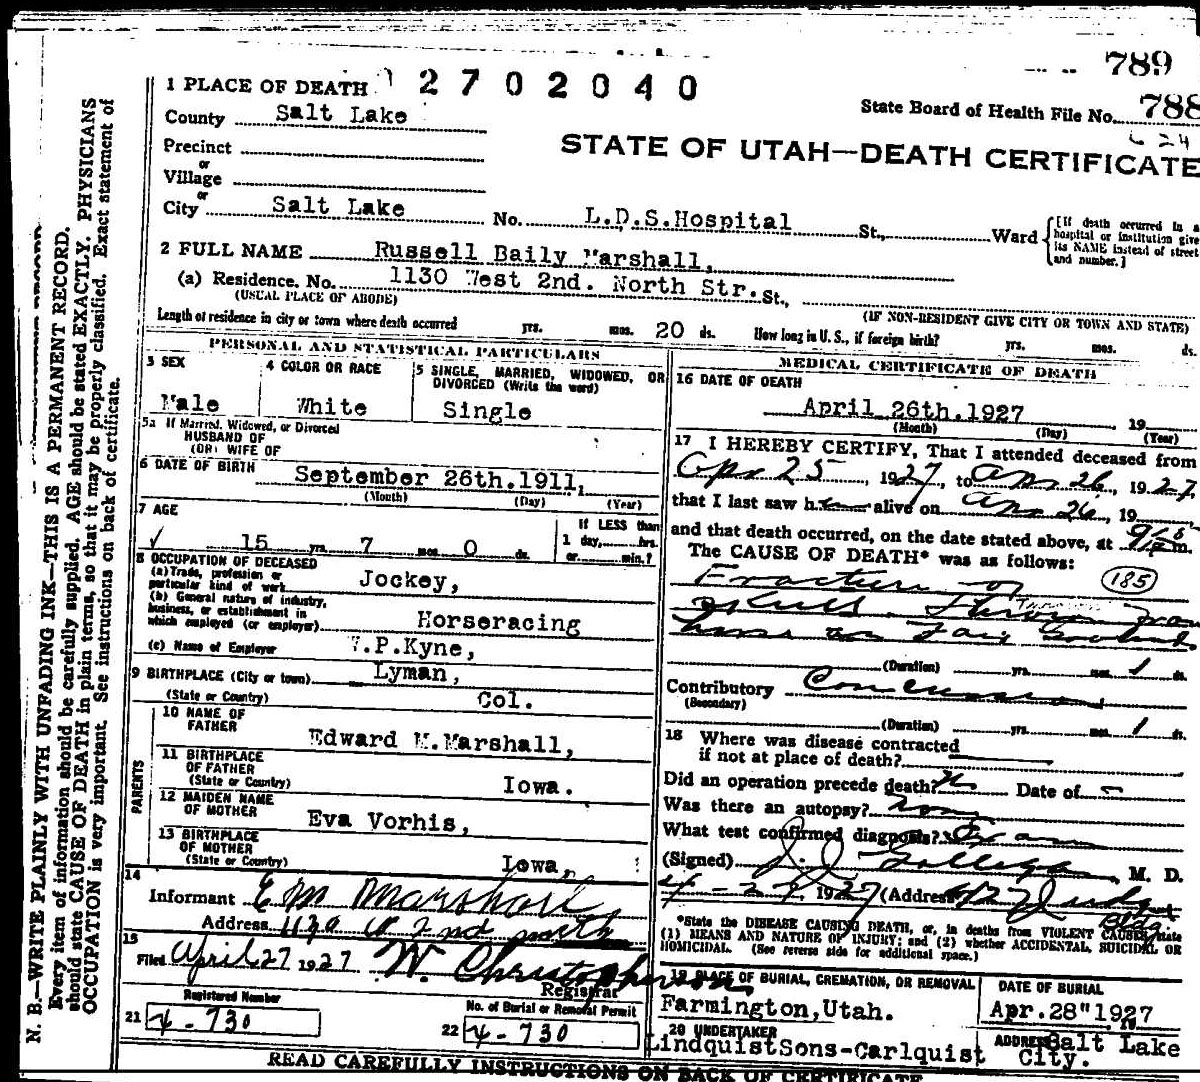 789
2702040
1 PLACE OF DEATH
State Board of Health File No. 788
County Salt Lake
624
STATE OF UTAH—DEATH CERTIFICATE
Precinct
or
Village
or
City Salt Lake No. L.D.S.Hospital St., Ward
[If death occurred in a
hospital or institution give
its NAME instead of street
and number.]
2 FULL NAME Russell Baily Marshall,
(a) Residence. No. 1130 West 2nd. North Str. St.,
(USUAL PLACE OF ABODE) (IF NON-RESIDENT GIVE CITY OR TOWN AND STATE)
Length of residence in city or town where death occurred yrs. mos. 20 ds. How long in U. S., if foreign birth? yrs. mos. ds.
PERSONAL AND STATISTICAL PARTICULARS
3 SEX
Male
4 COLOR OR RACE
White
5 SINGLE, MARRIED, WIDOWED, OR
DIVORCED (Write the word)
Single
5a If Married, Widowed, or Divorced
HUSBAND OF
(OR) WIFE OF
6 DATE OF BIRTH September 26th.1911,
(Month) (Day) (Year)
7 AGE
15 yrs. 7 mos. 0 ds.
If LESS than
1 day, hrs.
or min.?
8 OCCUPATION OF DECEASED
(a) Trade, profession or
particular kind of work Jockey,
(b) General nature of industry,
business, or establishment in
which employed (or employer) Horseracing
(c) Name of Employer W.P.Kyne,
9 BIRTHPLACE (City or town) Lyman,
(State or Country) Col.
PARENTS
10 NAME OF
FATHER Edward M.Marshall,
11 BIRTHPLACE
OF FATHER
(State or Country) Iowa.
12 MAIDEN NAME
OF MOTHER Eva Vorhis,
13 BIRTHPLACE
OF MOTHER
(State or Country) Iowa,
14
Informant E M Marshall
Address 1130 W 2nd north
15
Filed April 27 1927 W. Christopherson
Registrar
Registered Number
21 4-730
No. of Burial or Removal Permit
22 4-730
MEDICAL CERTIFICATE OF DEATH
16 DATE OF DEATH
April 26th.1927 19
(Month) (Day) (Year)
17 I HEREBY CERTIFY, That I attended deceased from
Apr 25, 1927, to Apr 26, 1927,
that I last saw h alive on Apr 26, 19
and that death occurred, on the date stated above, at m.
The CAUSE OF DEATH* was as follows:
185
Fracture of
skull. Thrown from
horse on Fair Ground
(Duration) yrs. mos. 1 ds.
Contributory Concussion
(Secondary)
(Duration) yrs. mos. 1 ds.
18 Where was disease contracted
if not at place of death?
Did an operation precede death? n Date of -
Was there an autopsy? none
What test confirmed diagnosis? Exam
(Signed) M. D.
4-27 1927 (Address 412 Judge
Bldg
*State the DISEASE CAUSING DEATH, or, in deaths from VIOLENT CAUSES, state
(1) MEANS AND NATURE OF INJURY; and (2) whether ACCIDENTAL, SUICIDAL OR
HOMICIDAL. (See reverse side for additional space.)
19 PLACE OF BURIAL, CREMATION, OR REMOVAL
Farmington,Utah.
DATE OF BURIAL
Apr.28"1927
20 UNDERTAKER
LindquistSons-Carlquist
ADDRESS Salt Lake
City.
READ CAREFULLY INSTRUCTIONS ON BACK OF CERTIFICATE
N. B.—WRITE PLAINLY WITH UNFADING INK—THIS IS A PERMANENT RECORD.
Every item of information should be carefully supplied. AGE should be stated EXACTLY. PHYSICIANS
should state CAUSE OF DEATH in plain terms, so that it may be properly classified. Exact statement of
OCCUPATION is very important. See instructions on back of certificate.